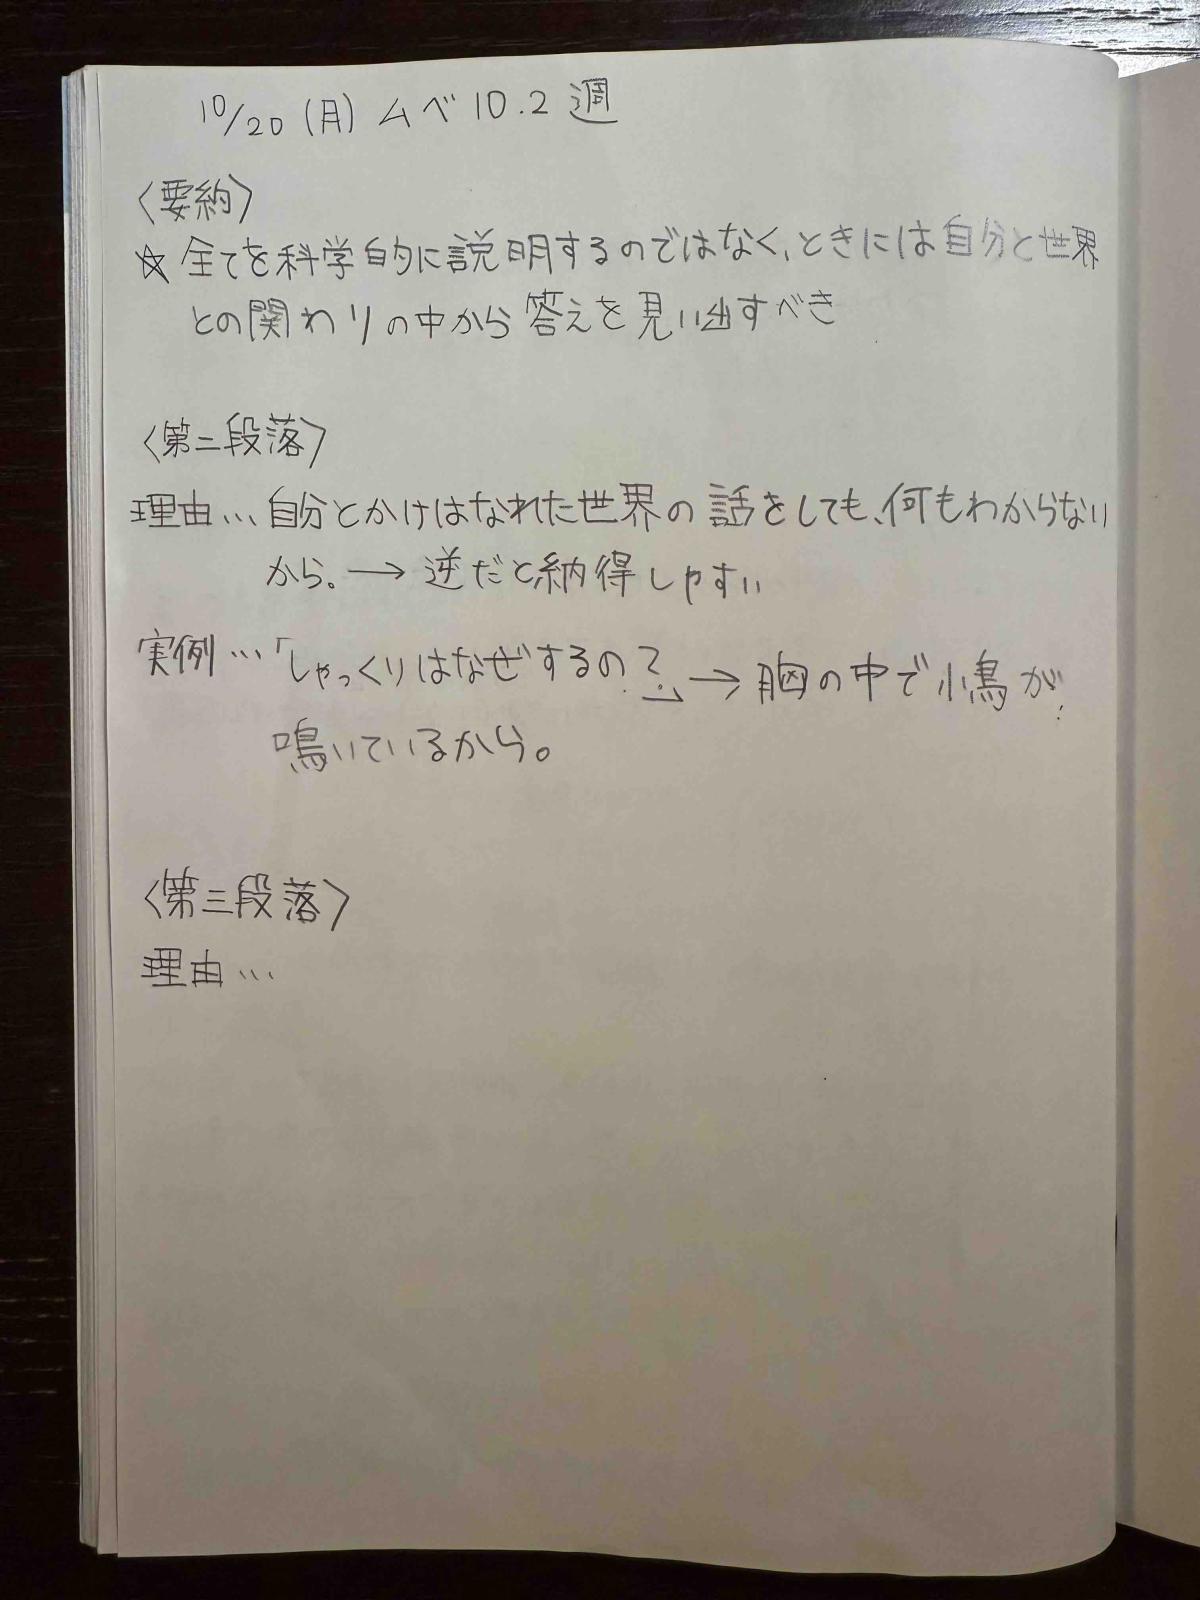 10/20(月) ムベ 10.2 週
〈要約〉
☆ 全てを科学的に説明するのではなく、ときには自分と世界
との関わりの中から答えを見い出すべき
〈第二段落〉
理由… 自分とかけはなれた世界の話をしても、何もわからない
から。→ 逆だと納得しやすい
実例…「しゃっくりはなぜするの?」→ 胸の中で小鳥が
鳴いているから。
〈第三段落〉
理由…